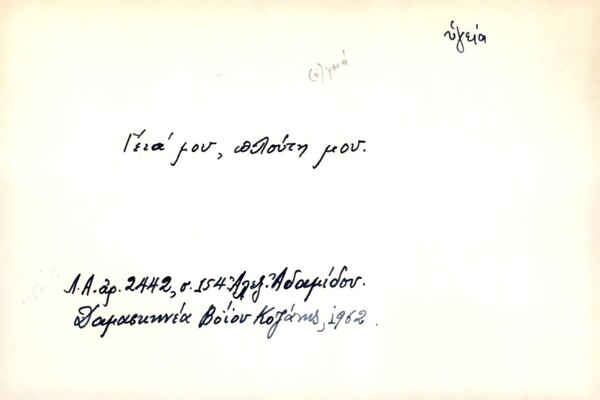 ὑγεία
(υ)γειά
Γειά μου, πλούτη μου.
Λ.Α. ἀρ. 2442, σ. 154 Ἀλεξ. Ἀδαμίδου.
Δαμασκηνέα Βοΐου Κοζάνης, 1962.